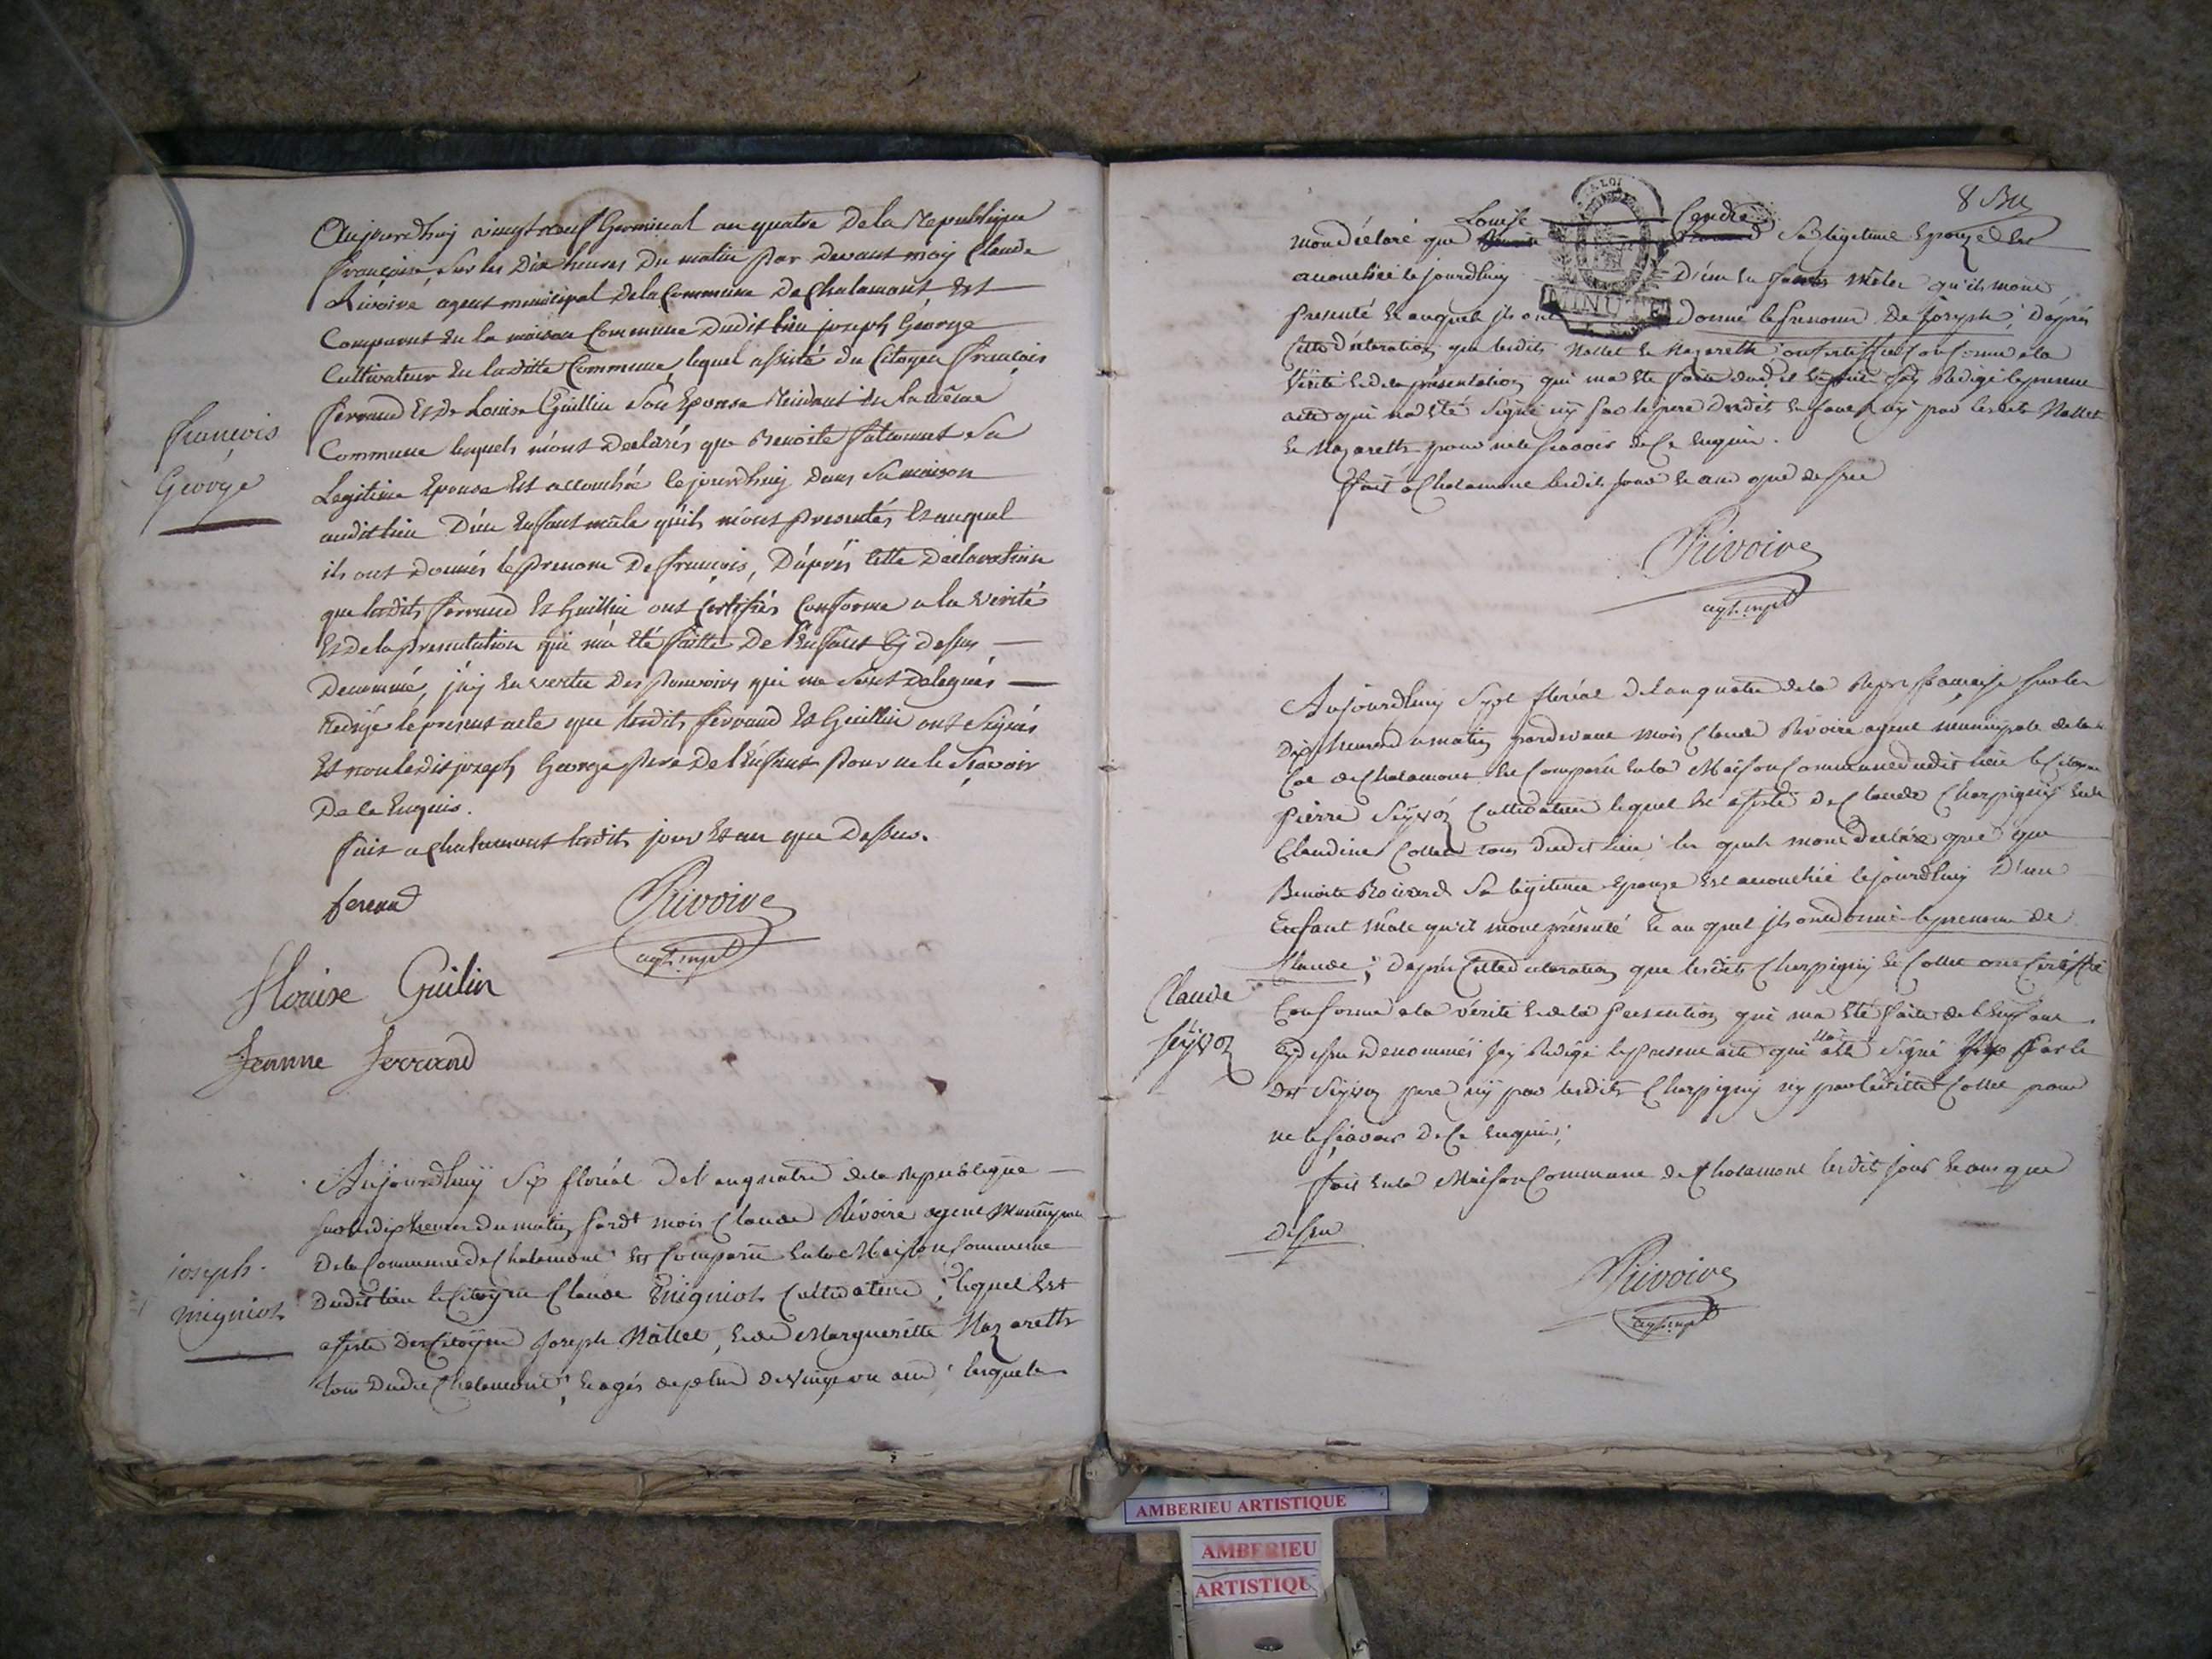 Aujourdhuy vingt neuf Germinal an quatre De la Republique
française, sur les Dix heures Du matin Par Devant moy Claude
Rivoire agent municipal De la Commune De Chalamont, Est
Comparut En la maison Commune Dudit lieu joseph George
Cultivateur En laditte Commune, lequel assisté du Citoyen François
ferrand Et De Louise Guillin Son Epouse Residants En la même
Commune lesquels m'ont Declarés que Benoite sa
Legitime Epouse Est accouchée Cejourdhuy Dans Sa maison
audit lieu D'un Enfant mâle qu'ils m'ont Presentés Et auquel
ils ont Donnés le Prenom De françois, D'après Cette Declaration
que lesdits ferrand Et Guillin ont Certifiés Conforme a la verité
Et De la Presentation qui m'a été faitte De l'Enfant Cy dessus
Denommé, j'ay En vertu Des Pouvoirs qui me sont Delegués
Redigé le present acte que lesdits ferrand Et Guillin ont Signés
Et non ledit joseph George Pere De l'Enfant Pour ne le Sçavoir
De ce Enquis.
fait a Chalamont lesdits jour Et an que Dessus.
François
George
ferand
Rivoire
agt. mpal
Louise Guilin
Jeanne Ferrand
Aujourdhuy Six floréal de l'an quatre de la Republique
sur les dix heures du matin Pardt moi Claude Rivoire agent Municipal
De la Commune de Chalamont Est Comparu En la Maison Commune
Dudit lieu le Citoyen Claude Migniot Cultivateur, lequel Est
assisté Des Citoyens Joseph Nallet, Et de Marguerite Nazareth
tous Dudit Chalamont, Et agés de plus de vingt un ans, lesquels
joseph
migniot
8
Louise
mont déclaré que Sa legitime Epouze Est
accouchée Cejourdhuy D'un Enfants Mâles qu'ils mont
Presenté Et auquel ils ont donné le Prenom De Joseph, D'après
Cette Déclaration que lesdits Nallet Et Nazareth ont Certiffié Conforme a la
Vérité Et de la présentation qui ma Eté faite dudit Enfant J'ay Redigé le present
acte qui na Eté Signé ny par le pere Dudit Enfant, ny par lesdits Nallet
Et Nazareth pour ne le sçavoir de Ce Enquis.
fait a Chalamont lesdits jour Et an que dessus
Rivoire
agt. mpal
MINUTE
Aujourdhuy Sept floréal de l'an quatre de la Repu française sur les
Dix heures du matin pardevant moi Claude Rivoire agent municipale de la
Coe de Chalamont Est Comparu En la Maison Commune dudit lieu le Citoyen
Pierre Séyvoz Cultivateur lequel Est assisté de Claude Charpigny Et de
Claudine Collet tous dudit lieu les quels mont déclaré que
Benoite Sa légitime Epouze Est accouchée Cejourdhuy D'un
Enfant Mâle qu'il mont présenté Et au quel ils ont donné le prenom de
Claude; Daprès Cette declaration que lesdits Charpigny Et Collet ont Certiffié
Conforme a la vérité Et de la Presention qui ma Eté faite de l'Enfant
Cy dessus denommés Jay Redigé le present acte qui na Eté Signé Par le
Dt Séyvoz pere ny par lesdits Charpigny ny par laditte Collet pour
ne le sçavoir De Ce Enquis;
fait En la Maison Commune de Chalamont lesdits jour Et an que
Dessus
Claude
séyvoz
Rivoire
agt. mpal
AMBERIEU ARTISTIQUE
AMBERIEU
ARTISTIQU